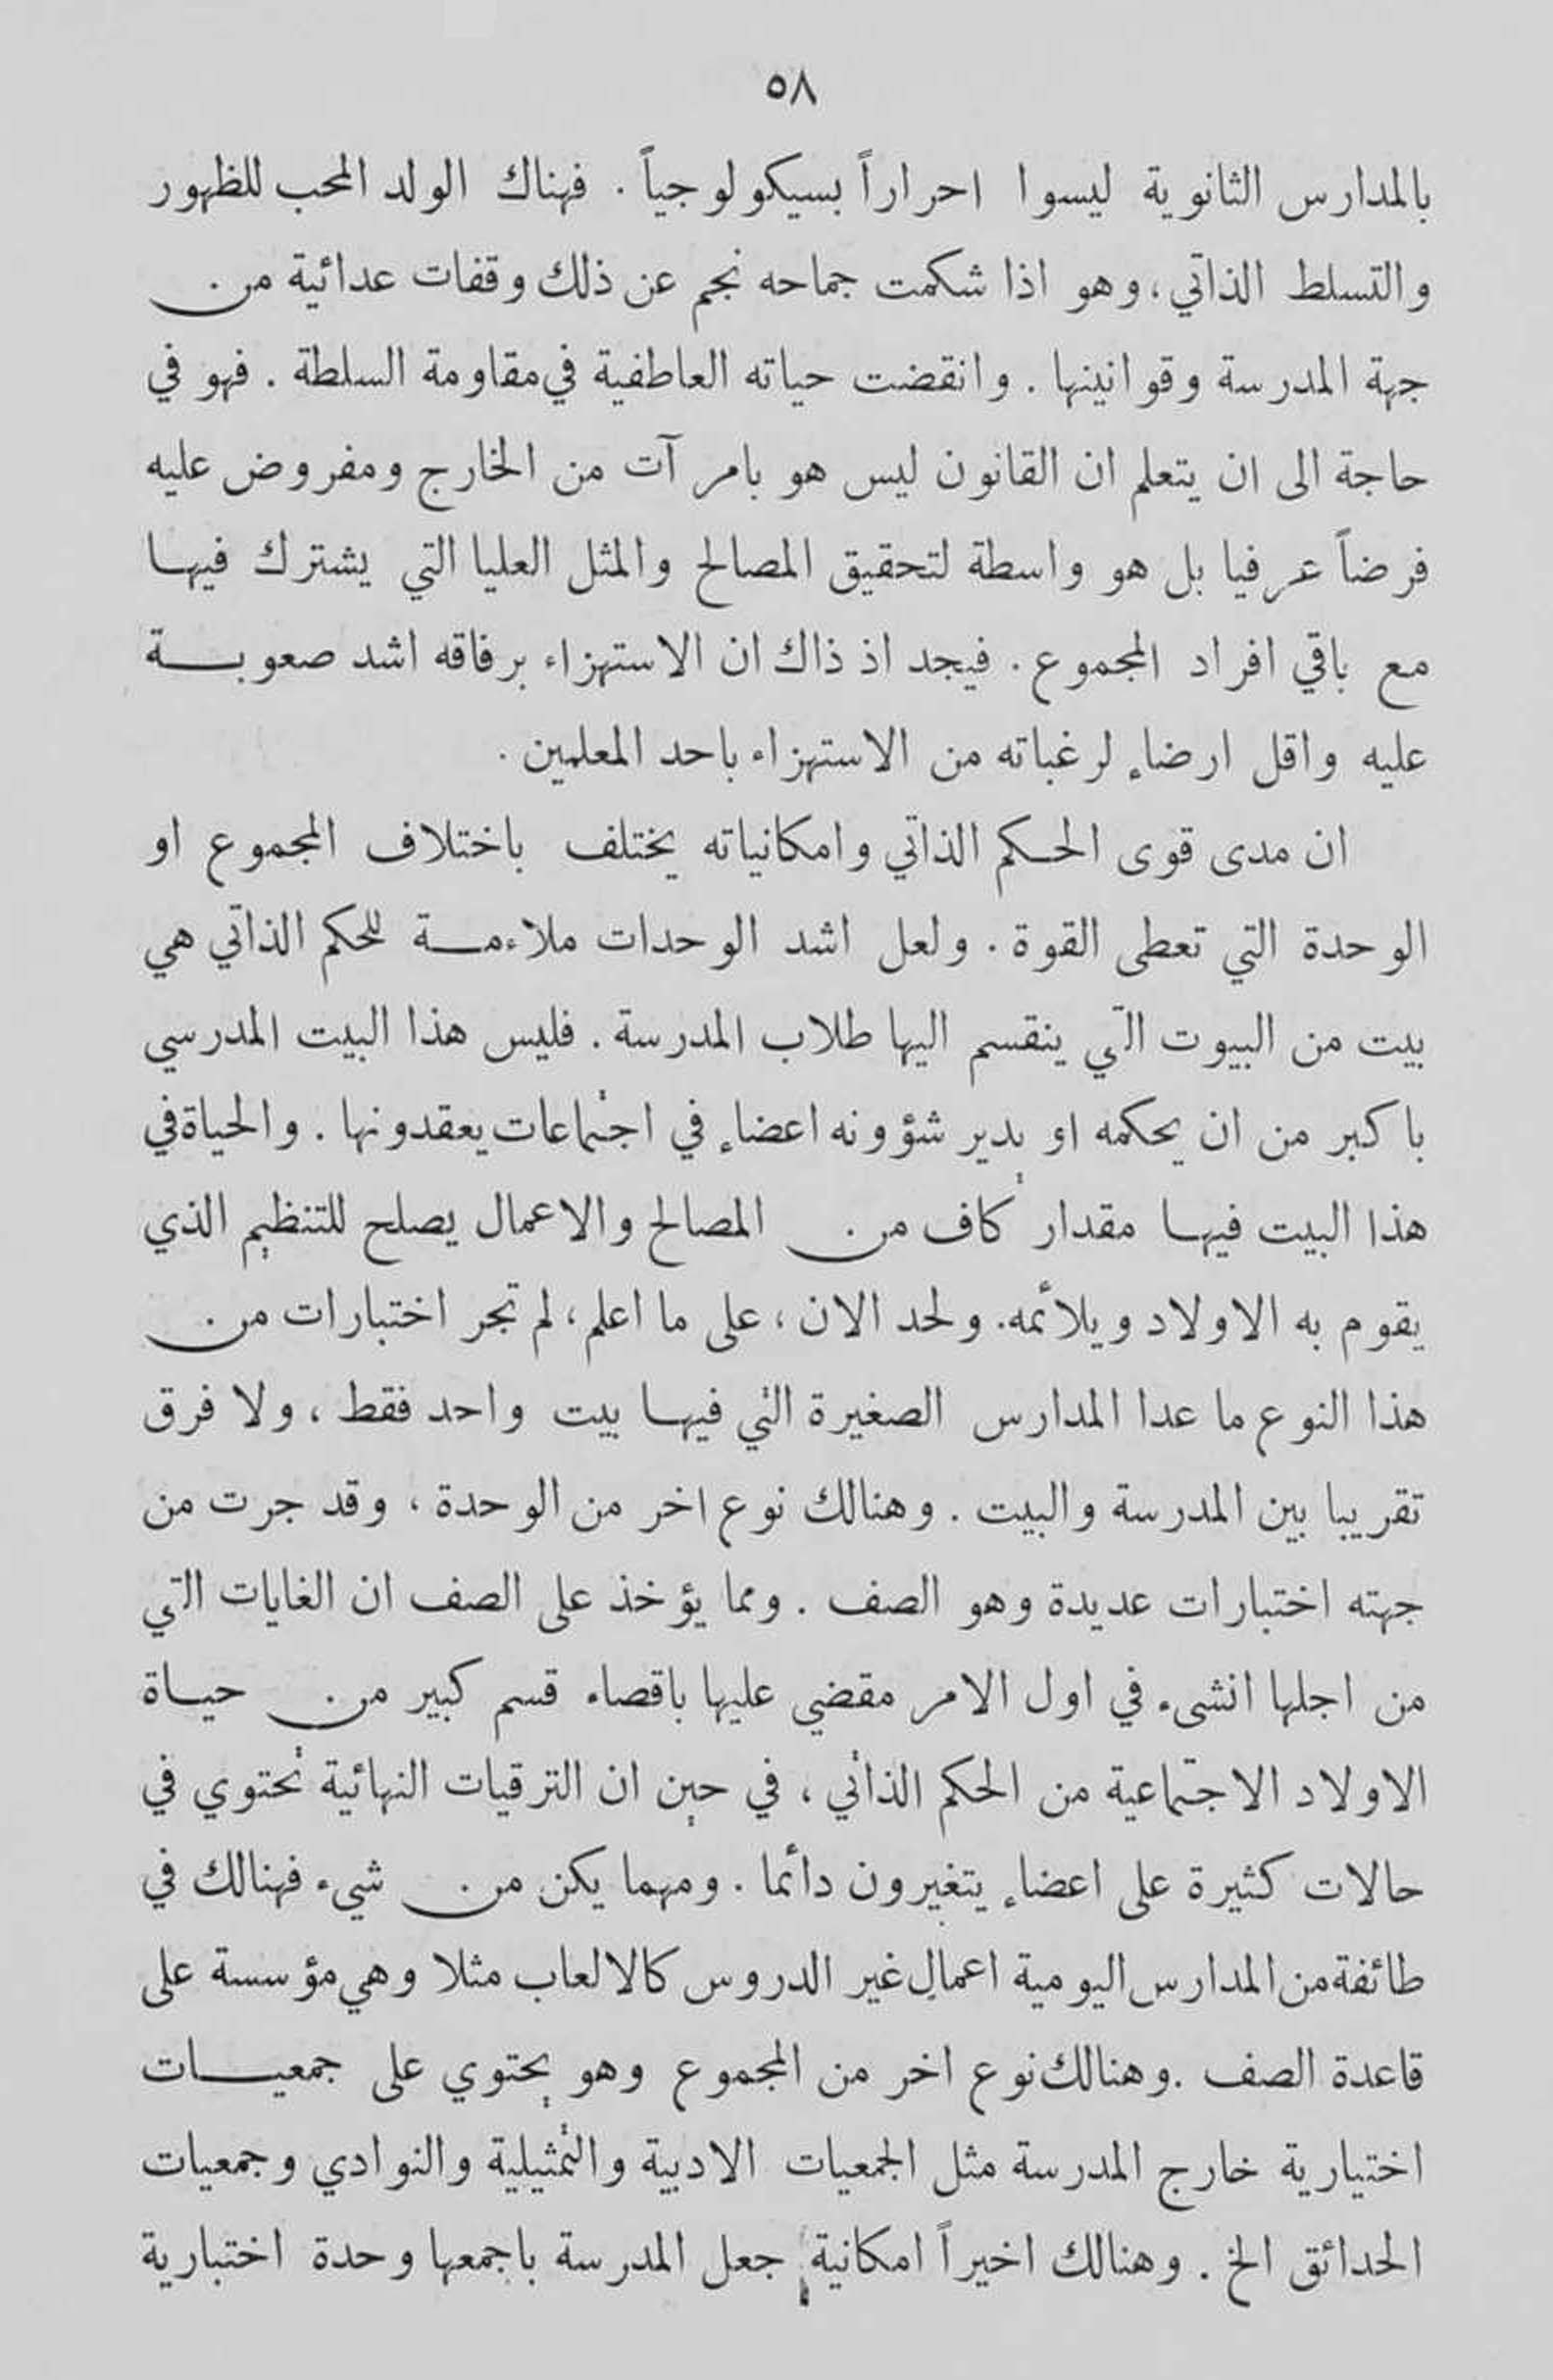 ٥٨
بالمدارس الثانوية ليسوا احراراً بسيكولوجياً . فهناك الولد المحب للظهور
والتسلط الذاتي، وهو اذا شكمت جماحه نجم عن ذلك وقفات عدائية من
جهة المدرسة وقوانينها . وانقضت حياته العاطفية في مقاومة السلطة . فهو في
حاجة الى ان يتعلم ان القانون ليس هو بامر آت من الخارج ومفروض عليه
فرضاً عرفيا بل هو واسطة لتحقيق المصالح والمثل العليا التي يشترك فيها
مع باقي افراد المجموع . فيجد اذ ذاك ان الاستهزاء برفاقه اشد صعوبة
عليه واقل ارضاء لرغباته من الاستهزاء باحد المعلمين .
ان مدى قوى الحكم الذاتي وامكانياته يختلف باختلاف المجموع او
الوحدة التي تعطى القوة . ولعل اشد الوحدات ملاءمة للحكم الذاتي هي
بيت من البيوت التي ينقسم اليها طلاب المدرسة . فليس هذا البيت المدرسي
باكبر من ان يحكمه او يدير شؤونه اعضاء في اجتماعات يعقدونها . والحياة في
هذا البيت فيها مقدار كاف من المصالح والاعمال يصلح للتنظيم الذي
يقوم به الاولاد ويلائمه. ولحد الان ، على ما اعلم، لم تجر اختبارات من
هذا النوع ما عدا المدارس الصغيرة التي فيها بيت واحد فقط ، ولا فرق
تقريبا بين المدرسة والبيت . وهنالك نوع اخر من الوحدة ، وقد جرت من
جهته اختبارات عديدة وهو الصف . ومما يؤخذ على الصف ان الغايات التي
من اجلها انشىء في اول الامر مقضي عليها باقصاء قسم كبير من حياة
الاولاد الاجتماعية من الحكم الذاتي ، في حين ان الترقيات النهائية تحتوي في
حالات كثيرة على اعضاء يتغيرون دائما . ومهما يكن من شيء فهنالك في
طائفة من المدارس اليومية اعمال غير الدروس كالالعاب مثلا وهي مؤسسة على
قاعدة الصف . وهنالك نوع اخر من المجموع وهو يحتوي على جمعيات
اختيارية خارج المدرسة مثل الجمعيات الادبية والتمثيلية والنوادي وجمعيات
الحدائق الخ . وهنالك اخيراً امكانية جعل المدرسة باجمعها وحدة اختبارية